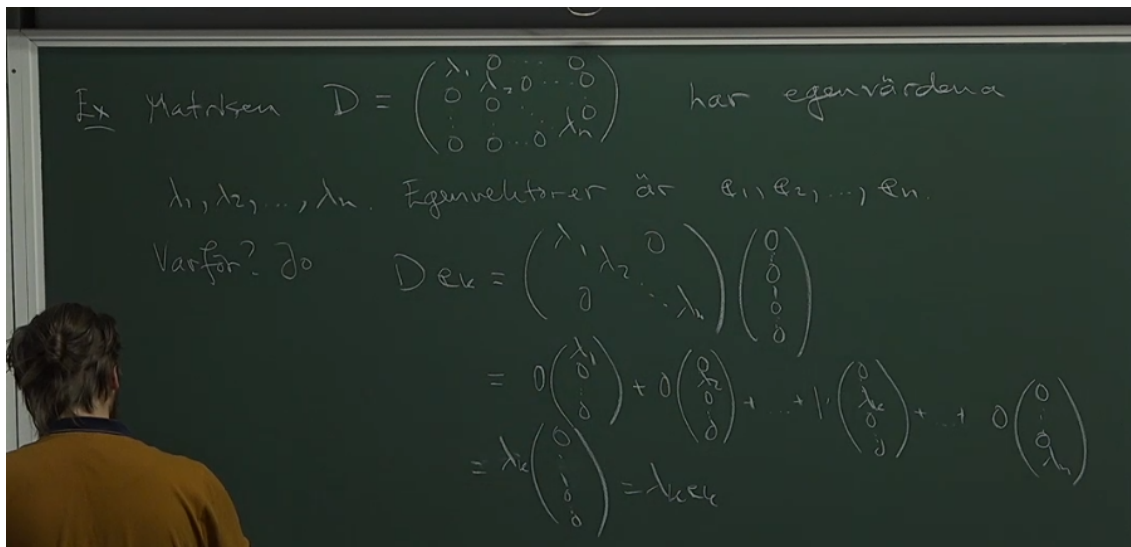 Ex Matrisen D = ( λ₁ 0 ... 0 ; 0 λ₂ 0 ... 0 ; ⋮ 0 ⋱ 0 ; 0 0 ... 0 λₙ ) har egenvärdena
λ₁, λ₂, ..., λₙ. Egenvektorer är e₁, e₂, ..., eₙ.
Varför? Jo D eₖ = ( λ₁ λ₂ 0 ; 0 ⋱ λₙ ) ( 0 ⋮ 0 1 0 ⋮ 0 )
= 0 ( λ₁ 0 ⋮ 0 ) + 0 ( 0 λ₂ 0 ⋮ 0 ) + ... + 1· ( 0 ⋮ λₖ 0 ⋮ 0 ) + ... + 0 ( 0 ⋮ 0 λₙ )
= λₖ ( 0 ⋮ 1 0 ⋮ 0 ) = λₖ eₖ